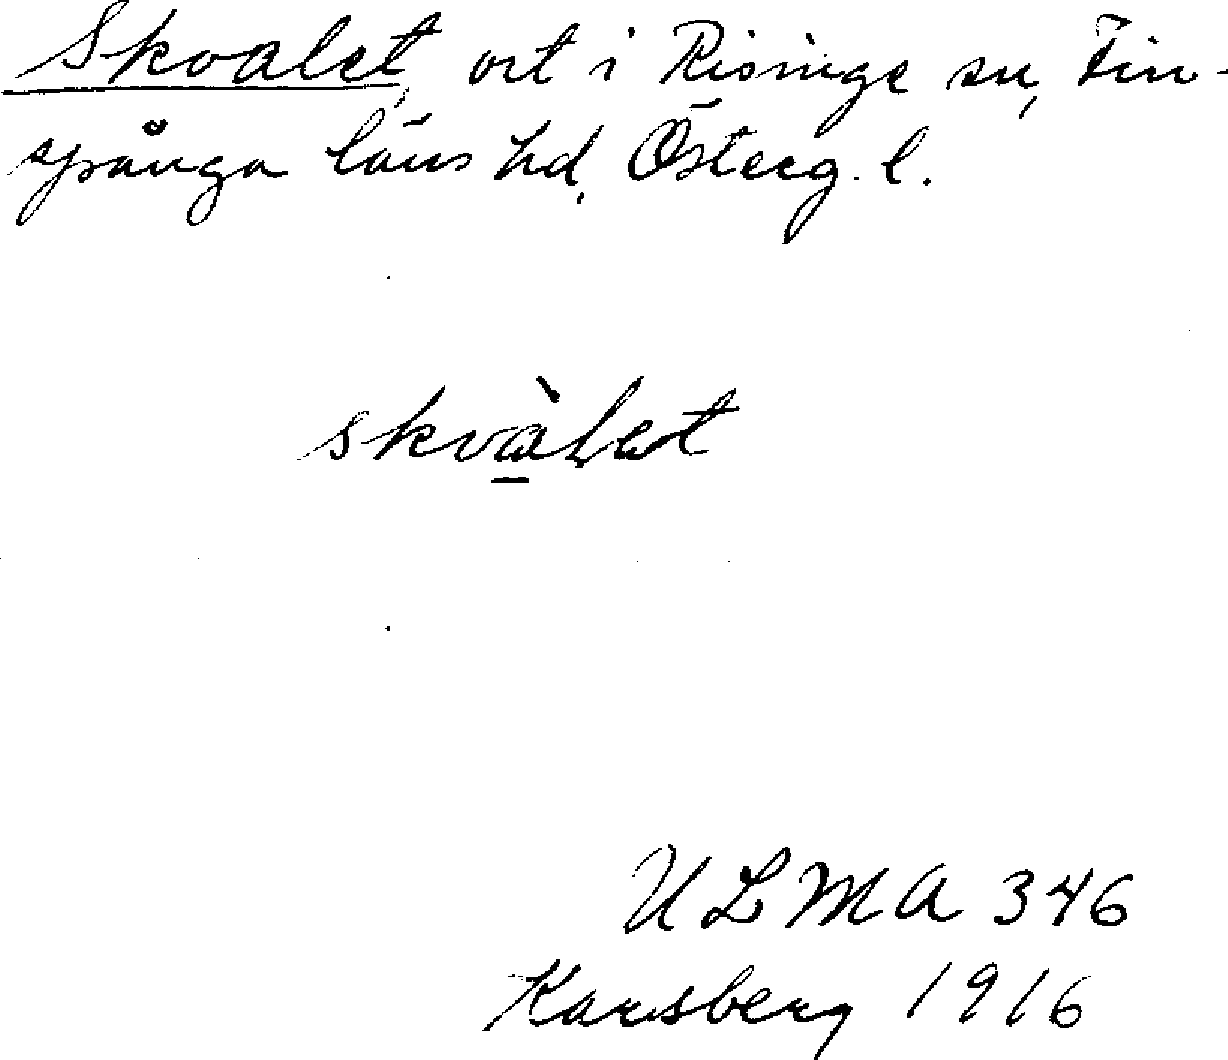 Skvalet, ort i Risinge sn, Fin-
spånga läns hd, Österg. l.
skvàlet
ULMA 346
Karsberg 1916